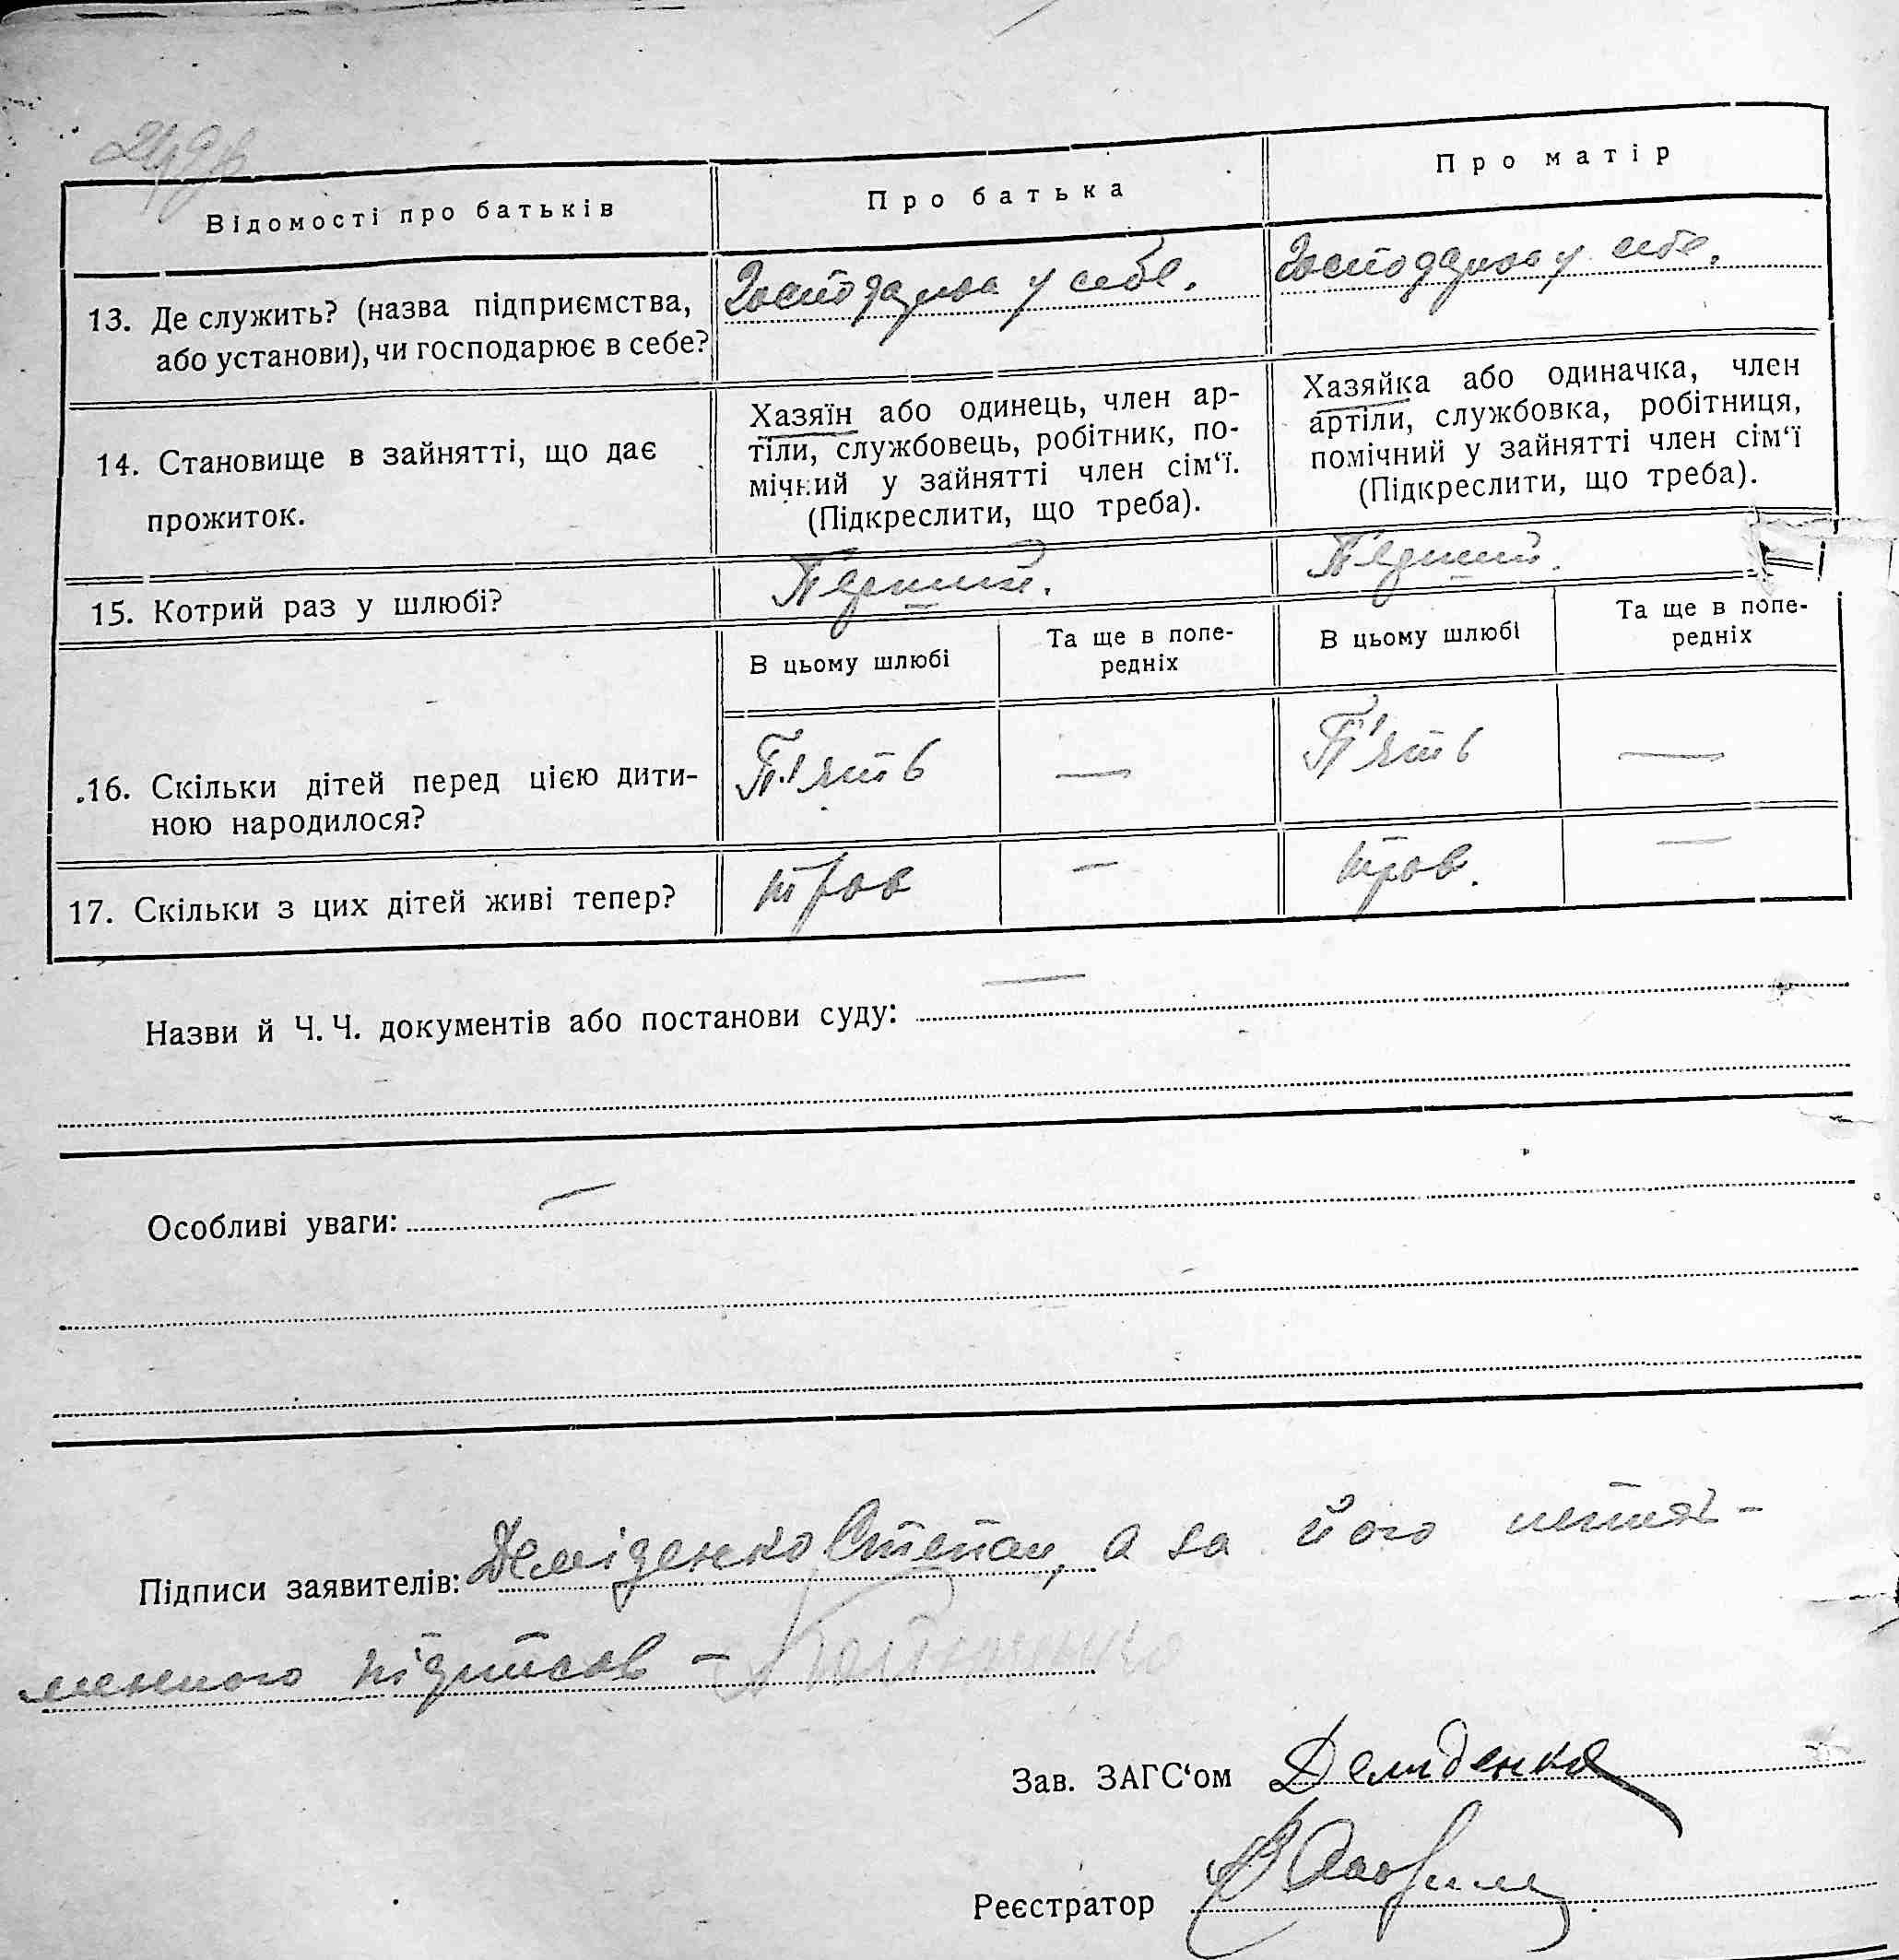 Відомості про батьків
Про батька
Про матір
13. Де служить? (назва підприємства,
або установи), чи господарює в себе?
Господарює у себе.
Господарює у себе.
14. Становище в зайнятті, що дає
прожиток.
Хазяїн або одинець, член ар-
тіли, службовець, робітник, по-
мічний у зайнятті член сім‘ї.
(Підкреслити, що треба).
Хазяйка або одиначка, член
артіли, службовка, робітниця,
помічний у зайнятті член сім‘ї
(Підкреслити, що треба).
15. Котрий раз у шлюбі?
Перший.
Перший.
В цьому шлюбі
Та ще в попе-
редніх
В цьому шлюбі
Та ще в попе-
редніх
16. Скільки дітей перед цією дити-
ною народилося?
П'ять
—
П'ять
—
17. Скільки з цих дітей живі тепер?
троє
—
троє.
—
Назви й Ч. Ч. документів або постанови суду: —
Особливі уваги: —
Підписи заявителів: Деміденко Степан, а за його непись-
менного підписав –
Зав. ЗАГС‘ом Демиденко
Реєстратор